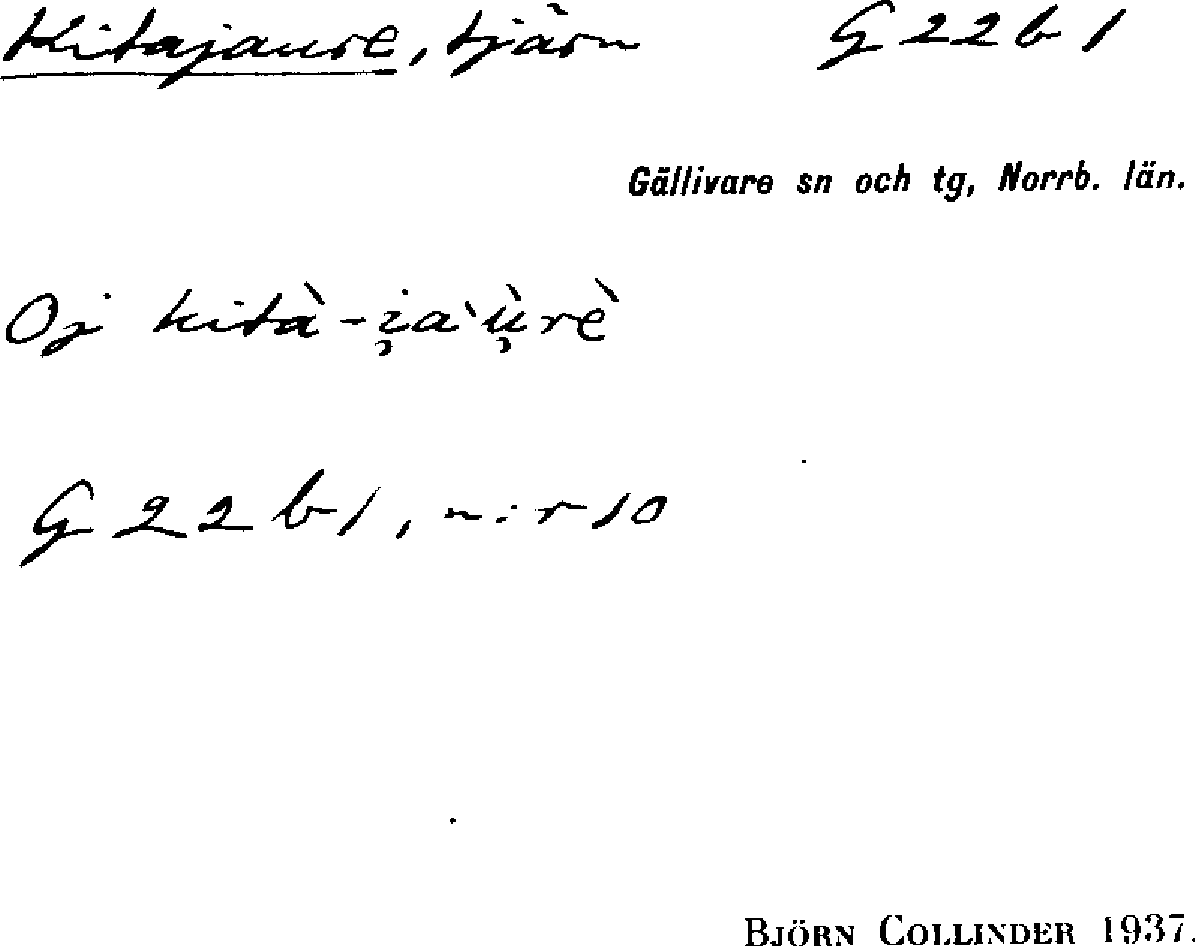 Kitajaure, tjärn G 22 b 1
Gällivare sn och tg, Norrb. län.
Oj kità-i̯a`ù̯rè
G 22 b 1, n:r 10
BJÖRN COLLINDER 1937.